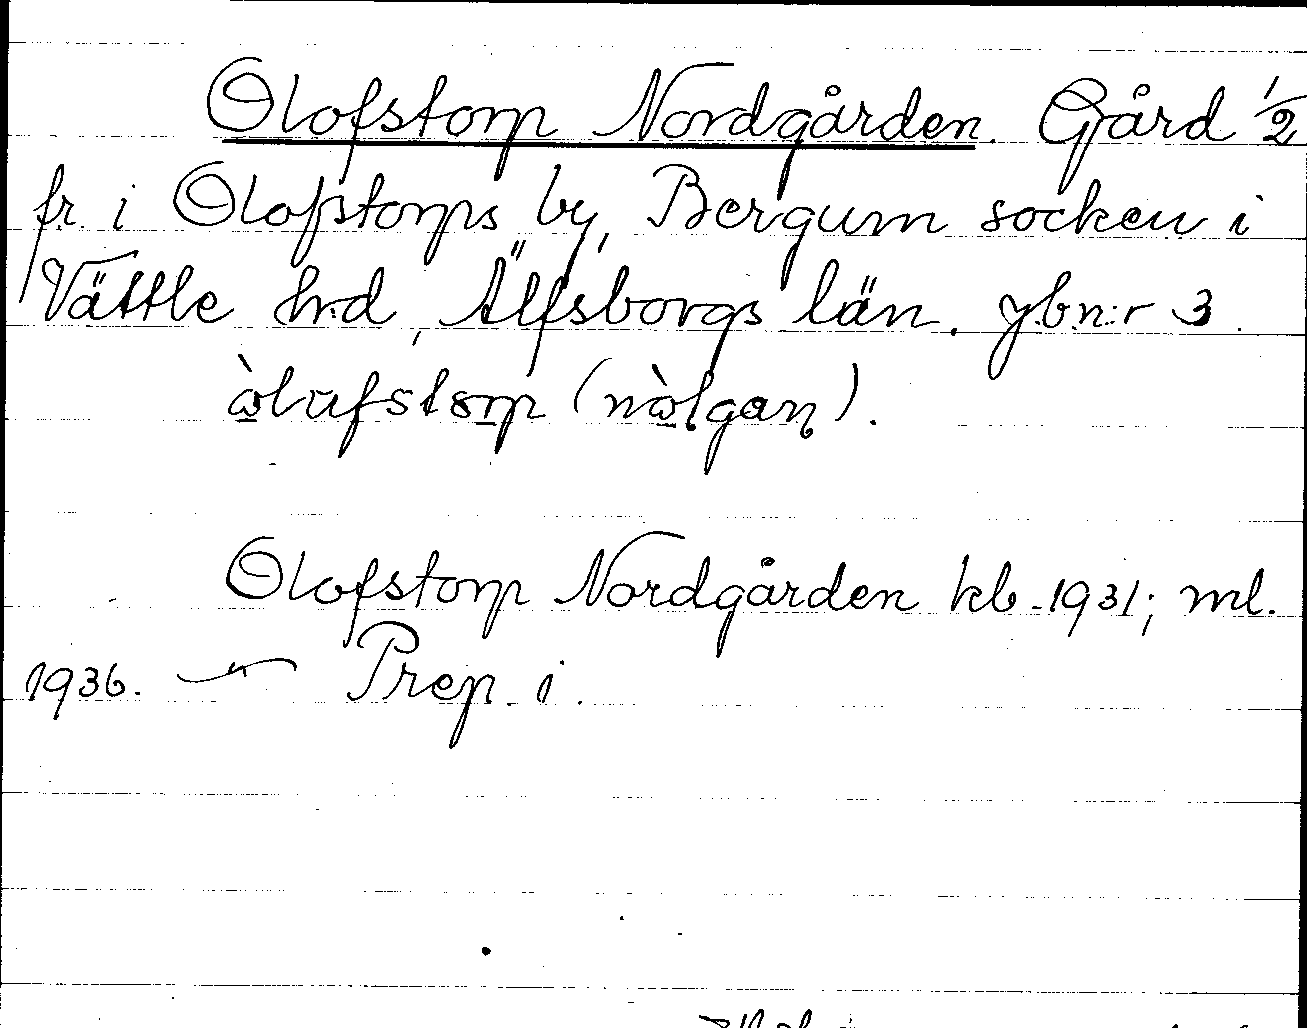 Olofstorp Nordgården. Gård 1/2
fr. i Olofstorps by, Bergum socken i
Vättle hrd, Älfsborgs län. jbn:r 3.
òlufstorp (nòlgaɳ).
Olofstorp Nordgården kb. 1931; ml.
1936. — Prep. i.